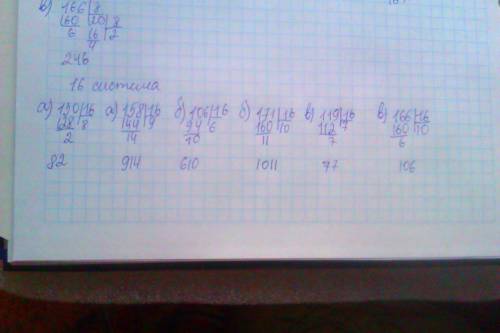 в) 166|8
160|20|8
6 16|2
4
246
16 система
а) 130|16 а) 158|16 б) 106|16 б) 171|16 в) 119|16 в) 166|16
128|8 144|9 96|6 160|10 112|7 160|10
2 14 10 11 7 6
82 914 610 1011 77 106